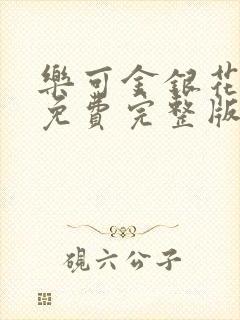 樂可金銀花
免費完整版
硯六公子